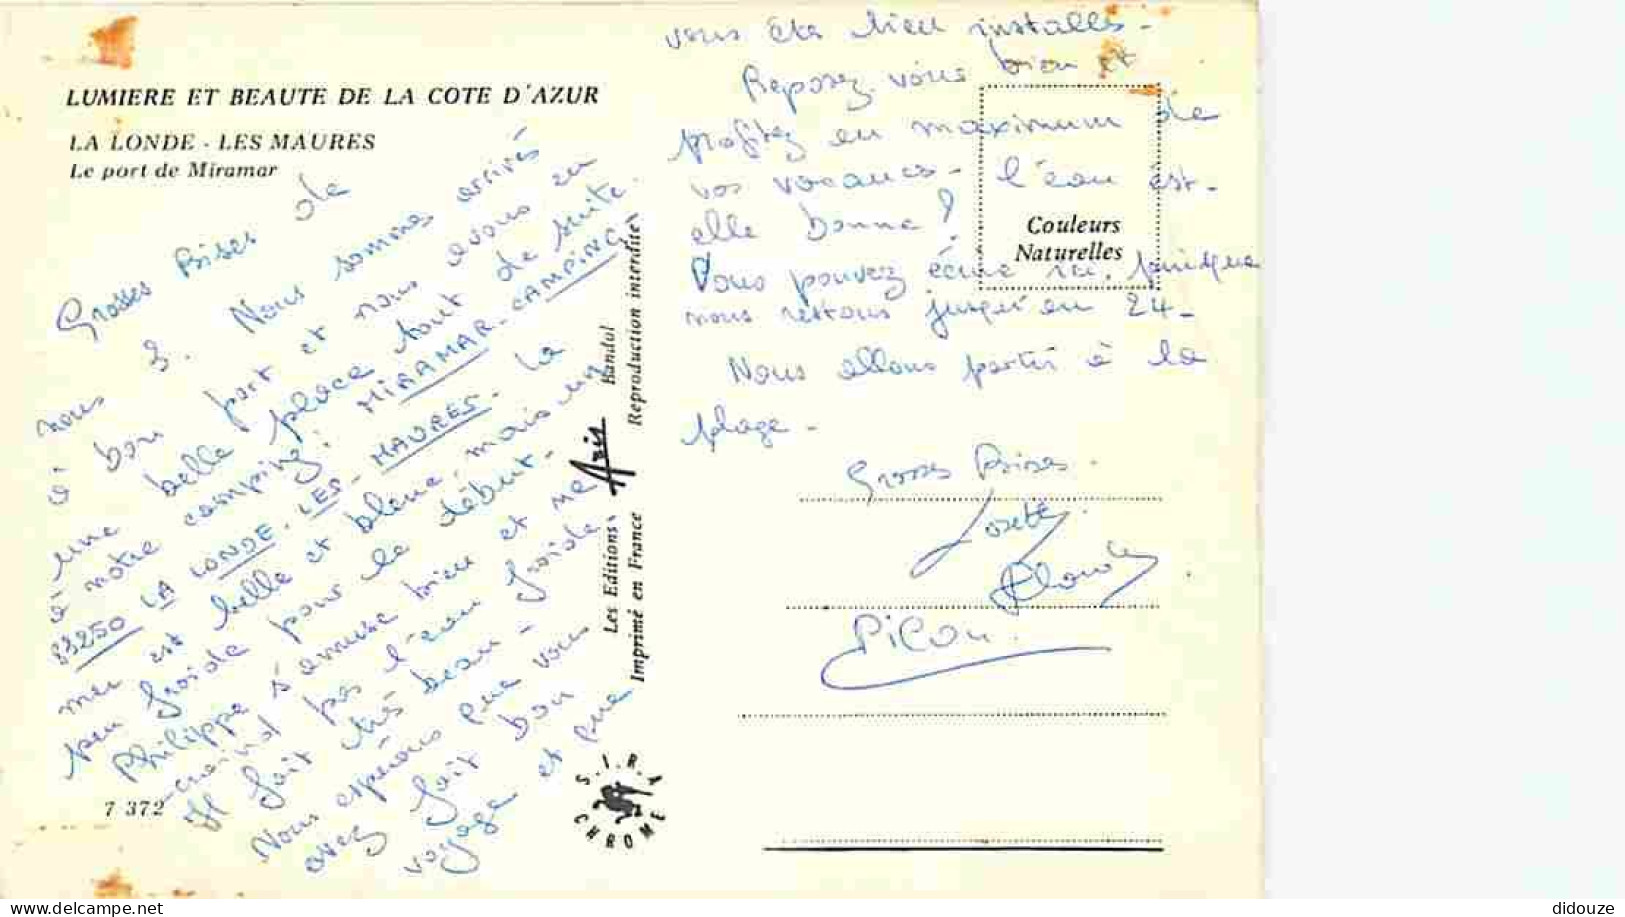 LUMIERE ET BEAUTE DE LA COTE D'AZUR
LA LONDE - LES MAURES
Le port de Miramar
Grosses Bises de
nous 3. Nous sommes arrivés
à bon port et nous avons eu
une belle place tout de suite.
à notre camping: MIRAMAR-CAMPING
83250 LA LONDE-LES-MAURES. La
mer est belle et bleue mais un
peu froide pour le début-
Philippe s'amuse bien et ne
craint pas l'eau froide.
Il fait très beau-
Nous espérons que vous
avez fait bon
voyage et que
7 372
Les Editions Aris Bandol
Imprimé en France Reproduction interdite
S.I.R.A
CHROME
vous êtes bien installés-
Reposez vous bien et
profitez en maximum de
vos vacances- l'eau est-
elle bonne?
Vous pouvez écrire ici, puisque
nous restons jusqu'au 24-
Nous allons partir à la
plage-
Couleurs
Naturelles
Grosses Bises.
Josette
PiCou.
didouze